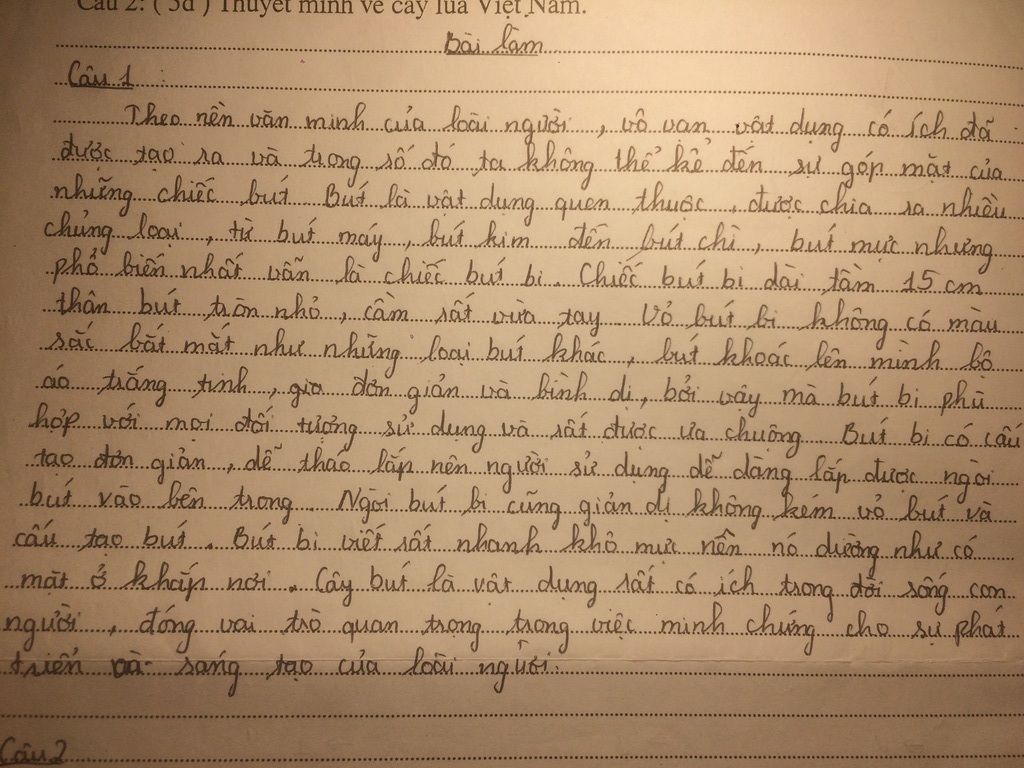 Câu 2: ( 5đ ) Thuyết minh về cây lúa Việt Nam.
Bài làm
Câu 1 :
Theo nền văn minh của loài người , vô vàn vật dụng có ích đã
được tạo ra và trong số đó ta không thể kể đến sự góp mặt của
những chiếc bút Bút là vật dụng quen thuộc , được chia ra nhiều
chủng loại , từ bút máy , bút kim đến bút chì , bút mực nhưng
phổ biến nhất vẫn là chiếc bút bi . Chiếc bút bi dài tầm 15 cm
thân bút tròn nhỏ , cầm rất vừa tay Vỏ bút bi không có màu
sắc bắt mắt như những loại bút khác , bút khoác lên mình bộ
áo trắng tinh , đơn giản và bình dị , bởi vậy mà bút bi phù
hợp với mọi đối tượng sử dụng và rất được ưa chuộng Bút bi có cấu
tạo đơn giản , dễ tháo lắp nên người sử dụng dễ dàng lắp được ngòi
bút vào bên trong Ngòi bút bi cũng giản dị không kém vỏ bút và
cấu tạo bút . Bút bi viết rất nhanh khô mực nền nó dường như có
mặt ở khắp nơi . Cây bút là vật dụng rất có ích trong đời sống con
người , đóng vai trò quan trọng trong việc minh chứng cho sự phát
triển và sáng tạo của loài người .
Câu 2